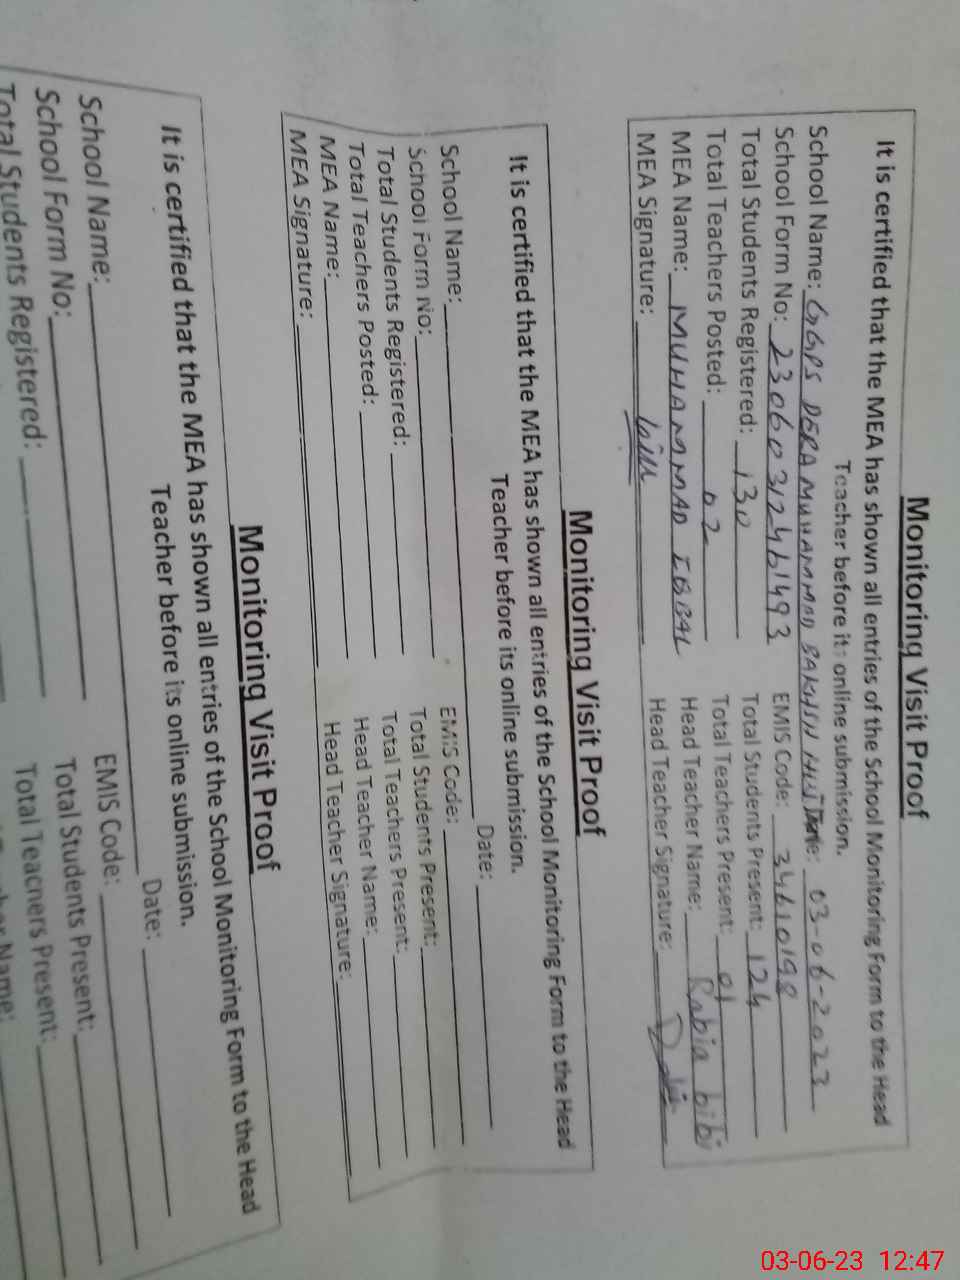 Monitoring Visit Proof
It is certified that the MEA has shown all entries of the School Monitoring Form to the Head
Teacher before its online submission.
School Name: GGPS DERA MUHAMMAD BAKHSH Date: 03-06-2023
School Form No: 23060312461493 EMIS Code: 34610198
Total Students Registered: 130 Total Students Present: 124
Total Teachers Posted: 02 Total Teachers Present: 01
MEA Name: MUHAMMAD IQBAL Head Teacher Name: Rabia bibi
MEA Signature: Head Teacher Signature:
Monitoring Visit Proof
It is certified that the MEA has shown all entries of the School Monitoring Form to the Head
Teacher before its online submission.
School Name: Date:
School Form No: EMIS Code:
Total Students Registered: Total Students Present:
Total Teachers Posted: Total Teachers Present:
MEA Name: Head Teacher Name:
MEA Signature: Head Teacher Signature:
Monitoring Visit Proof
It is certified that the MEA has shown all entries of the School Monitoring Form to the Head
Teacher before its online submission.
School Name: Date:
School Form No: EMIS Code:
Total Students Registered: Total Students Present:
Total Teachers Present:
Name:
03-06-23 12:47